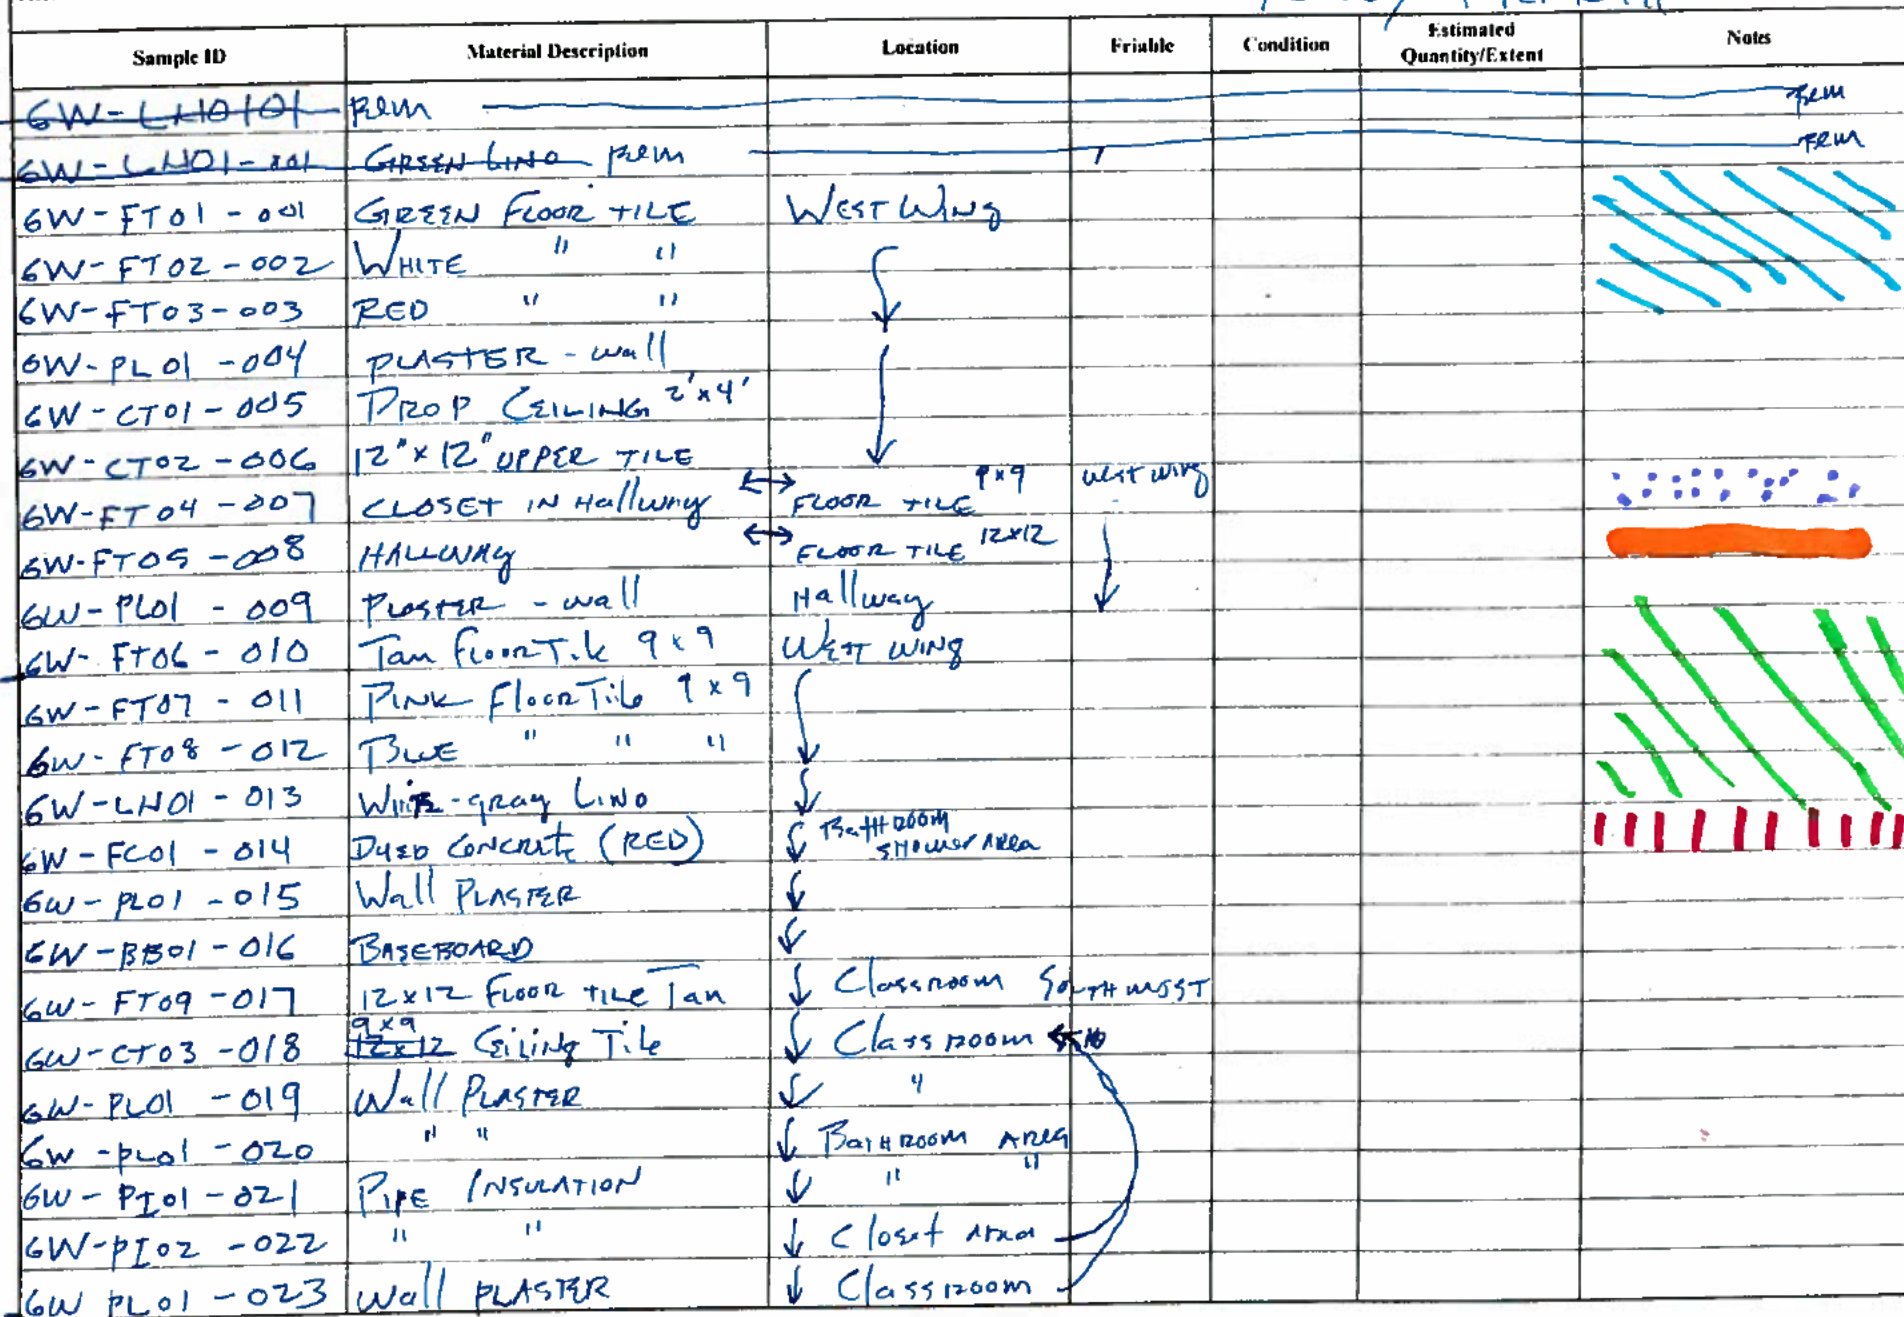 Sample ID Material Description Location Friable Condition Estimated Quantity/Extent Notes
6W-LH0101 rem rem
6W-LN01-001 GREEN LINO rem rem
6W-FT01-001 GREEN FLOOR TILE WEST WING
6W-FT02-002 WHITE " "
6W-FT03-003 RED " "
6W-PL01-004 PLASTER - wall
6W-CT01-005 DROP CEILING 2'x4'
6W-CT02-006 12"x12" UPPER TILE
6W-FT04-007 CLOSET IN Hallway ↔ FLOOR TILE 9x9 west wing
6W-FT05-008 HALLWAY ↔ FLOOR TILE 12x12
6W-PL01-009 PLASTER - wall Hallway
6W-FT06-010 Tan Floor Tile 9x9 WEST WING
6W-FT07-011 PINK Floor Tile 9x9
6W-FT08-012 BLUE " " "
6W-LN01-013 White-gray LINO
6W-FC01-014 DYED CONCRETE (RED) BATHROOM SHOWER AREA
6W-PL01-015 Wall PLASTER
6W-BB01-016 BASEBOARD
6W-FT09-017 12x12 FLOOR TILE Tan Classroom SOUTHWEST
6W-CT03-018 9x9 12x12 Ceiling Tile Classroom
6W-PL01-019 Wall PLASTER "
6W-PL01-020 " " BATHROOM AREA
6W-PI01-021 PIPE INSULATION " "
6W-PI02-022 " " Closet Area
6W PL01-023 Wall PLASTER Classroom